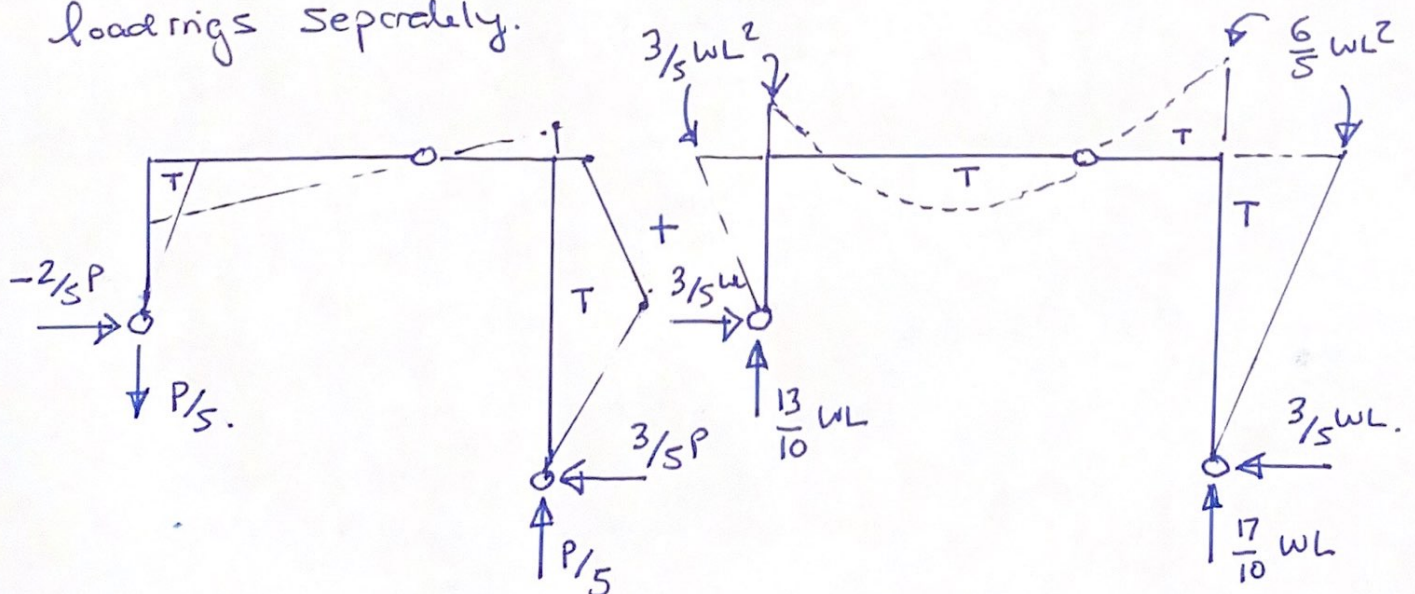 loadings separately.
3/5 WL²
6/5 WL²
T
T
T
T
T
+
-2/5 P
P/5.
3/5 P
P/5
3/5 W
13/10 WL
3/5 WL.
17/10 WL